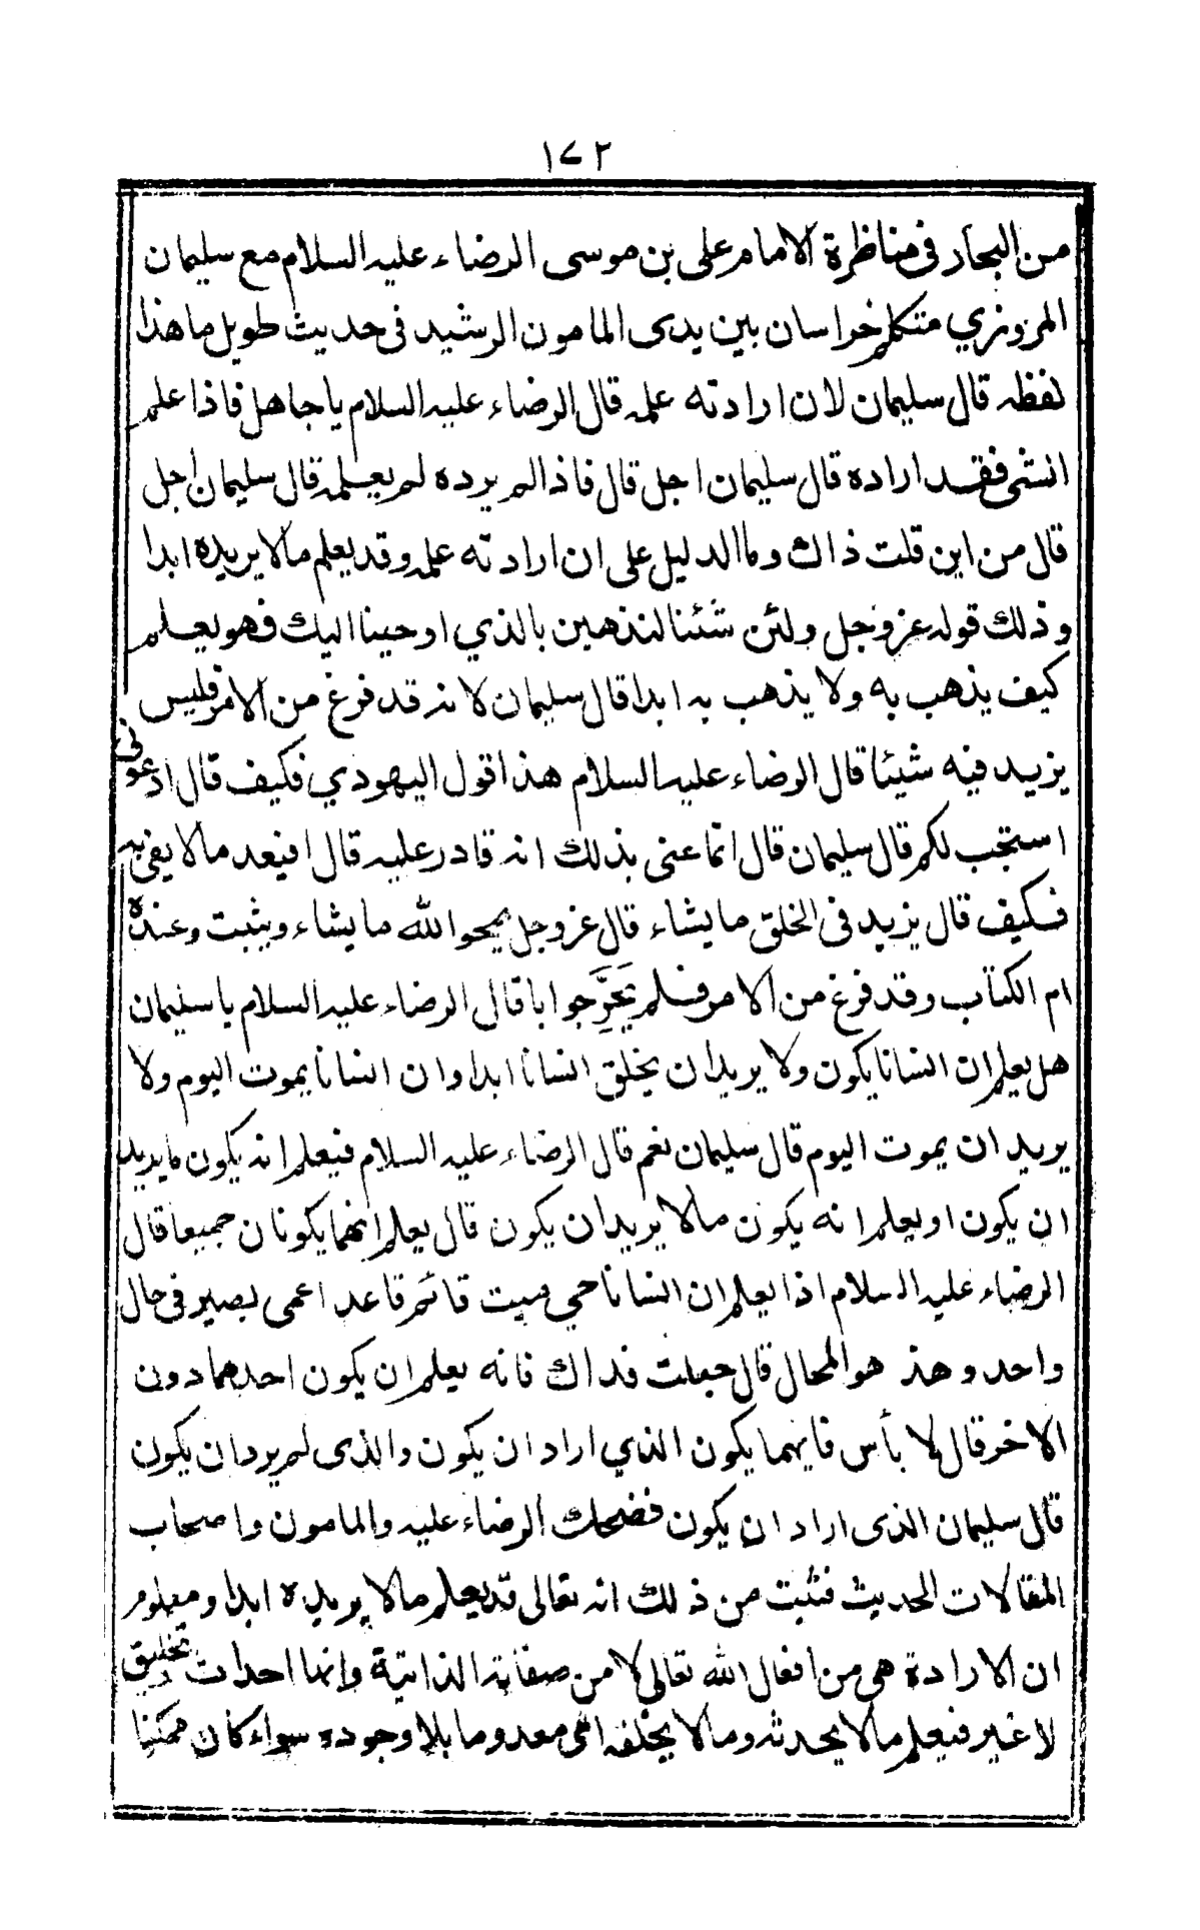 ١٧٢
من البحار فى مناظرة الامام على بن موسى الرضاء عليه السلام مع سليمان
المروزي متكلم خراسان بين يدى المامون الرشيد فى حديث طويل ما هذا
لفظه قال سليمان لان ارادته علمه قال الرضاء عليه السلام يا جاهل فاذا علم
الشئ فقد اراده قال سليمان اجل قال فاذا لم يرده لم يعلمه قال سليمان اجل
قال من اين قلت ذاك وما الدليل على ان ارادته علمه وقد يعلم مالا يريده ابدا
وذلك قوله عز وجل ولئن شئنا لنذهبن بالذي اوحينا اليك فهو يعلم
كيف يذهب به ولا يذهب به ابدا قال سليمان لانه قد فرغ من الامر فليس
يزيد فيه شيئا قال الرضاء عليه السلام هذا قول اليهودي فكيف قال ادعونى
استجب لكم قال سليمان قال انما عنى بذلك انه قادر عليه قال افيعد مالا يفى به
فكيف قال يزيد فى الخلق ما يشاء قال عز وجل يمحوا الله ما يشاء ويثبت وعنده
ام الكتاب وقد فرغ من الامر فلم يَحَرِّ جوابا قال الرضاء عليه السلام يا سليمان
هل يعلم ان انسانا يكون ولا يريد ان يخلق انسانا ابدا وان انسانا يموت اليوم ولا
يريد ان يموت اليوم قال سليمان نعم قال الرضاء عليه السلام فيعلم انه يكون ما يريد
ان يكون او يعلم انه يكون مالا يريد ان يكون قال يعلم انهما يكونان جميعا قال
الرضاء عليه السلام اذا يعلم ان انسانا حي ميت قائم قاعد اعمى بصير فى حال
واحد وهذ هو المحال قال جعلت فداك فانه يعلم ان يكون احدهما دون
الاخر قال لا بأس فايهما يكون الذي اراد ان يكون والذى لم يرد ان يكون
قال سليمان الذى اراد ان يكون فضحك الرضاء عليه والمامون واصحاب
المقالات الحديث فثبت من ذلك انه تعالى قد يعلم مالا يريده ابدا ومعلوم
ان الارادة هى من افعال الله تعالى لا من صفاته الذاتية وانها احداث وتخليق
لا غير فيعلم مالا يحدثه ومالا يخلقه اى معدوما بلا وجوده سواء كان ممكنا